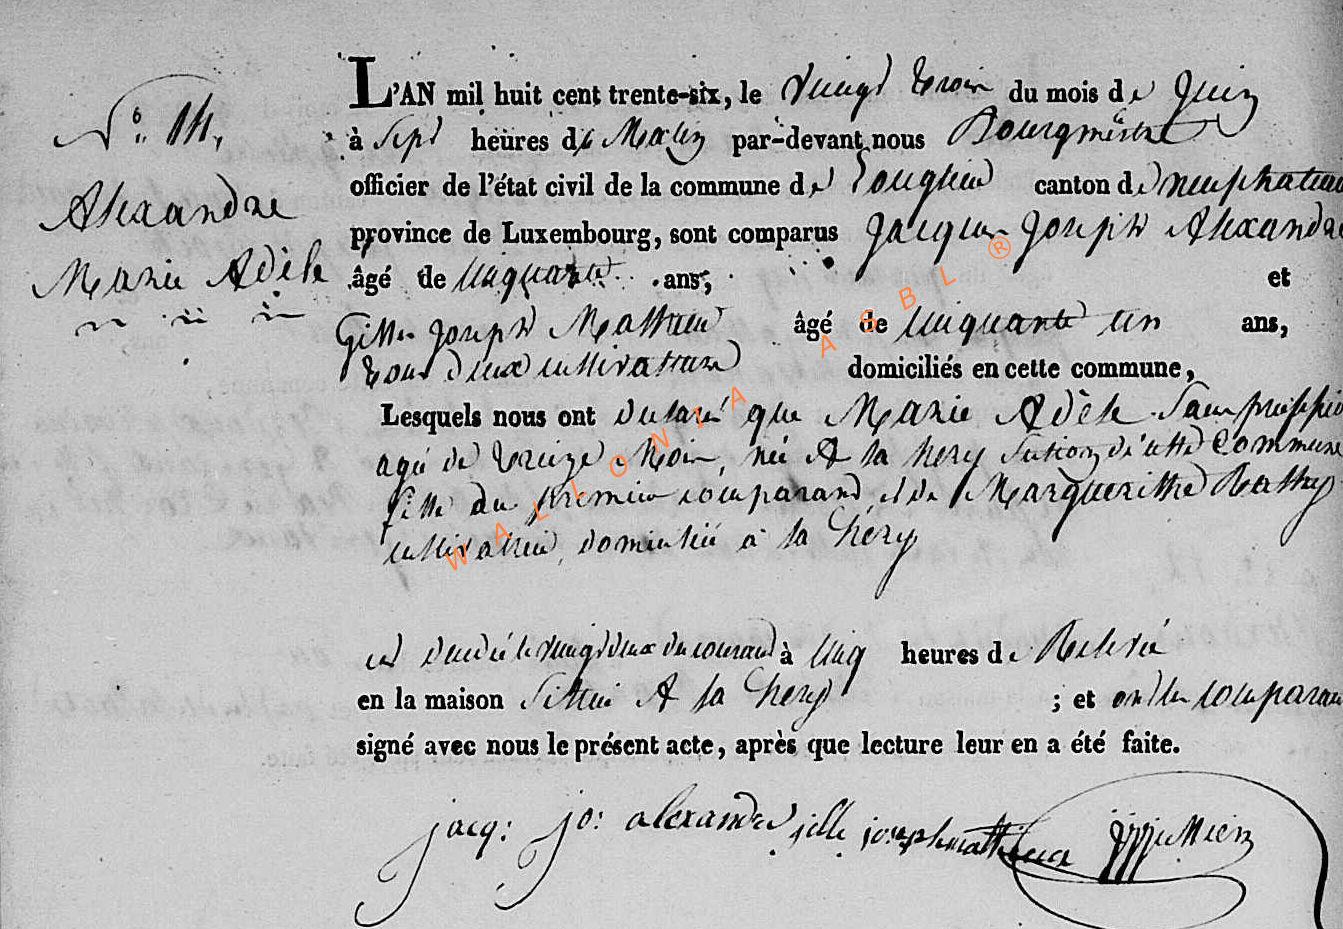 N.° 14,
Alexandre
Marie Adèle
L'AN mil huit cent trente-six, le vingt trois du mois de Juin
à Sept heures du Matin par-devant nous Bourgmestre
officier de l'état civil de la commune de Longlier canton de neufchateau
province de Luxembourg, sont comparus Jacques Joseph Alexandre
âgé de cinquante ans, et
Gille Joseph Mathieu âgé de cinquante un ans,
tous deux cultivateurs domiciliés en cette commune,
Lesquels nous ont declaré que Marie Adèle Sans proffession
agé de treize Mois, né A la hery Section de cette Commune
fille du premier comparant et de Margueritte
cultivatrice, domiciliée à la hery
est decedé le vingt deux du courant à cinq heures de Relevée
en la maison Sittuée A la hery ; et ont les comparants
signé avec nous le présent acte, après que lecture leur en a été faite.
jacq: jo: alexandre jille joseph mathieu
WALLONIA ASBL ®